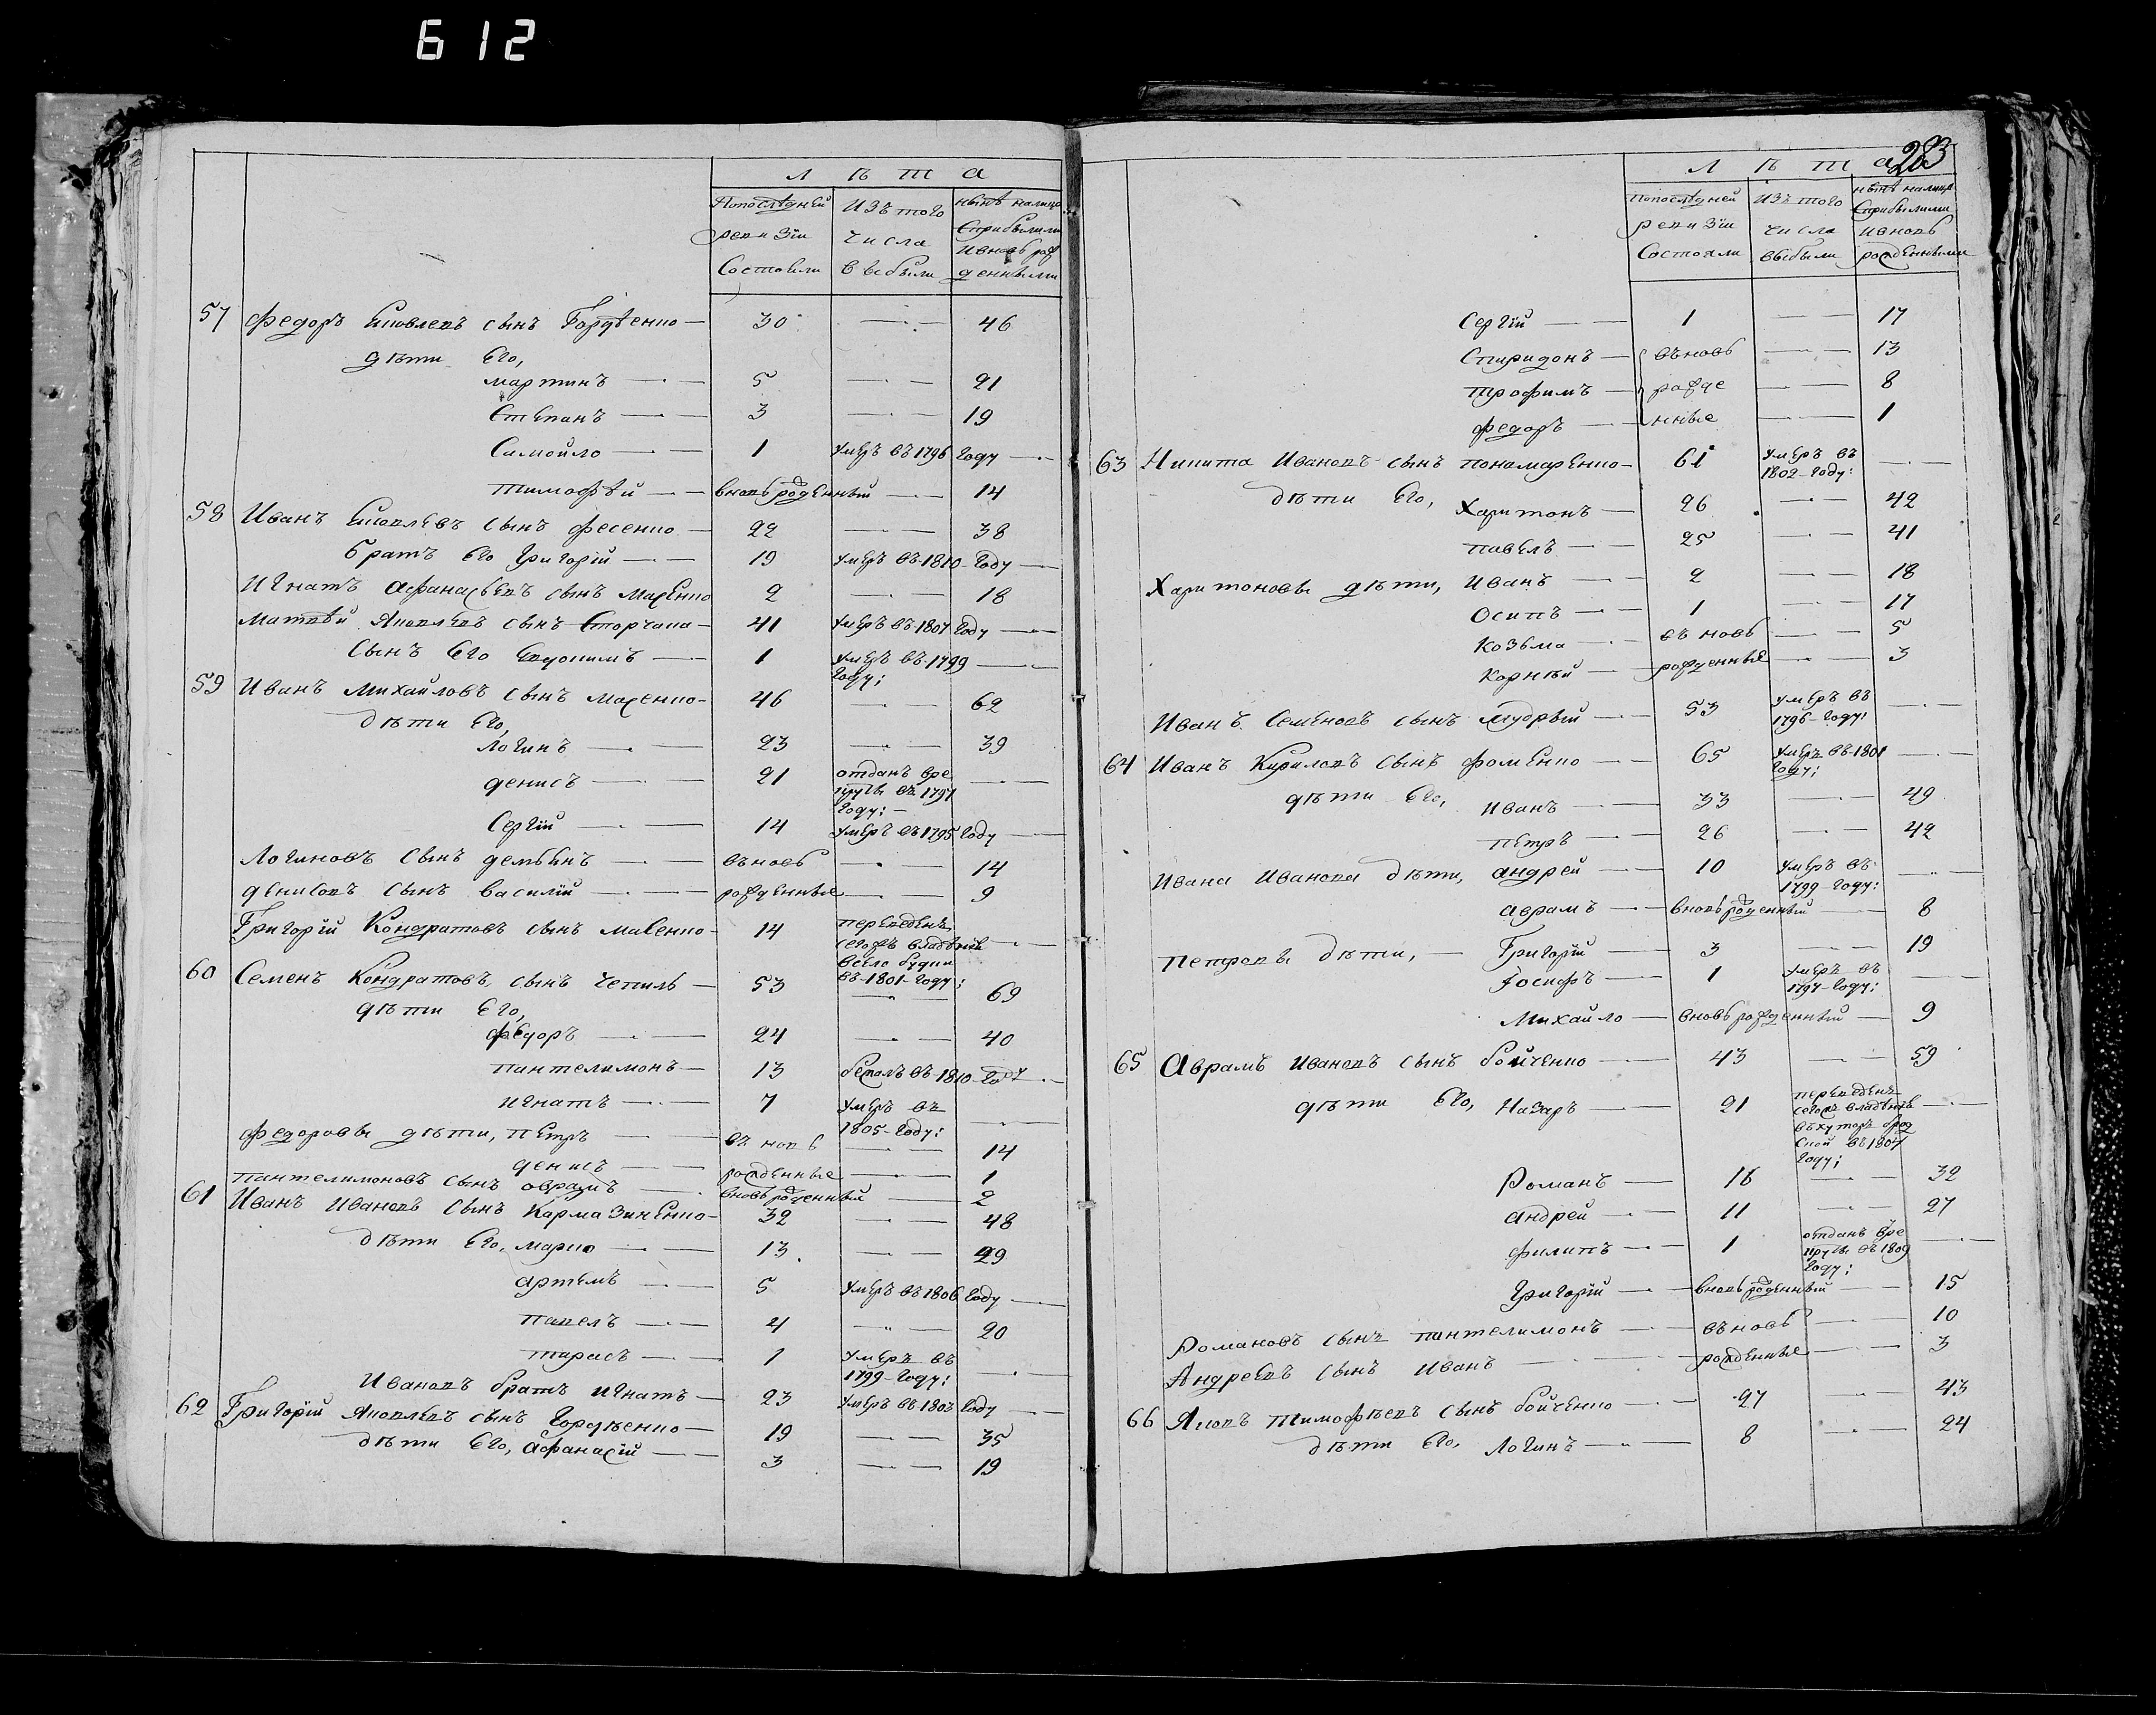 612
Л ѣ т а
Попослѣдней ревизіи Состояли
Изъ того числа выбыли
нынѣ налицо Сприбылими ивновь рожденными
57 Федоръ Яковлевъ сынъ Гордѣенко — 30 — 46
дѣти Его,
мартинъ — 5 — 21
Степанъ — 3 — 19
Самойло — 1 умеръ въ 1796 году —
тимофѣй — вновь рожденный — 14
58 Иванъ Яковлевъ сынъ фесенко — 22 — 38
братъ Его Григорій — 19 умеръ въ 1810 году —
Игнатъ Афанасьевъ сынъ Масенко 2 — 18
Матвѣй Яковлевъ сынъ Сторчака — 41 умеръ въ 1807 году —
Сынъ Его Евдокимъ — 1 умеръ въ 1799 году; —
59 Иванъ Михайловъ сынъ масенко — 46 — 62
дѣти Его,
Логинъ — 23 — 39
денисъ — 21 отданъ вре круты въ 1797 году: —
Сергій — 14 умеръ въ 1795 году —
Логиновъ сынъ демьянъ — въновь — 14
денисовъ сынъ василій — рожденные — 9
Григорій Кондратовъ сынъ масенко — 14 переведенъ сегожъ владѣнія всело будки въ 1801 году; —
60 Семенъ Кондратовъ сынъ чепиль — 53 — 69
дѣти Его,
федоръ — 24 — 40
пантелимонъ — 13 бежалъ въ 1810 году —
игнатъ — 7 умеръ въ 1805 году: —
Федоровы дѣти, петръ — въ новь — 14
денисъ — рожденные — 1
пантелимоновъ сынъ аврамъ — вновь рожденный — 2
61 Иванъ Ивановъ сынъ Кармазиненко — 32 — 48
дѣти Его, марко — 13 — 29
артемъ — 5 умеръ въ 1806 году —
павелъ — 4 — 20
тарасъ — 1 умеръ въ 1799 году: —
Ивановъ братъ игнатъ — 23 умеръ въ 1803 году —
62 Григорій Яковлевъ сынъ Гордѣенко — 19 — 35
дѣти Его, Афанасій — 3 — 19
283
Л ѣ т а
Попослѣдней ревизіи Состояли
Изъ того числа выбыли
нынѣ налицо Сприбылими ивновь рожденными
Сергій — 1 — 17
Спиридонъ — въновь — 13
трофимъ — рожде — 8
федоръ — нные — 1
63 Никита Ивановъ сынъ пономаренко — 61 умеръ въ 1802 году: —
дѣти Его, Харитонъ — 26 — 42
павелъ — 25 — 41
Харитоновы дѣти, Иванъ — 2 — 18
Осипъ — 1 — 17
Козьма — въ новь — 5
Корнѣй — рожденные — 3
Иванъ Семеновъ сынъ мудрый — 53 умеръ въ 1796 году: —
64 Иванъ Кириловъ сынъ фоменко — 65 умеръ въ 1801 году; —
дѣти Его, Иванъ — 33 — 49
петръ — 26 — 42
Ивана Иванова дѣти, андрей — 10 умеръ въ 1799 году: —
аврамъ — вновь рожденный — 8
Петровы дѣти, — Григорій — 3 — 19
Іосифъ — 1 умеръ въ 1797 году: —
Михайло — вновь рожденный — 9
65 Аврамъ Ивановъ сынъ бойченко — 43 — 59
дѣти Его, Назаръ — 21 переведенъ сегожъ владѣнія въхуторъ брод ской въ 1807 году; —
Романъ — 16 — 32
андрей — 11 — 27
филипъ — 1 отданъ вре круты въ 1809 году; —
Григорій — вновь рожденный — 15
Романовъ сынъ пантелимонъ — въновь — 10
Андреевъ сынъ Иванъ — рожденные — 3
66 Яковъ Тимофѣевъ сынъ бойченко — 27 — 43
дѣти Его, Логинъ — 8 — 24